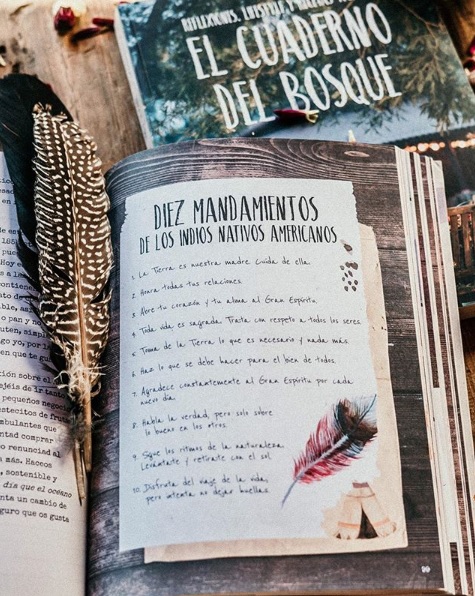 REFLEXIONES, LIFESTYLE Y
EL CUADERNO
DEL BOSQUE
DIEZ MANDAMIENTOS
DE LOS INDIOS NATIVOS AMERICANOS
1. La Tierra es nuestra madre. Cuida de ella.
2. Honra todas tus relaciones.
3. Abre tu corazón y tu alma al Gran Espíritu.
4. Toda vida es sagrada. Trata con respeto a todos los seres.
5. Toma de la Tierra lo que es necesario y nada más.
6. Haz lo que se debe hacer para el bien de todos.
7. Agradece constantemente al Gran Espíritu por cada
nuevo día.
8. Habla la verdad, pero solo sobre
lo bueno en los otros.
9. Sigue los ritmos de la naturaleza.
Levántate y retírate con el sol.
10. Disfruta del viaje de la vida,
pero intenta no dejar huellas.
go yo, por
en que te gu
ción sobre el
éjeis de ir tan
pequeños nego
estecitos de fru
mbulantes que
ntad comprar
o renunciad al
a más. Haceos
, sostenible y
día que el océano
nta un cambio de
guro que os gusta